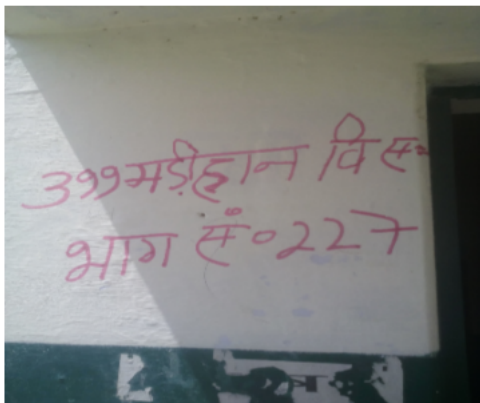 399मड़ीहान वि स०
भाग सं०227